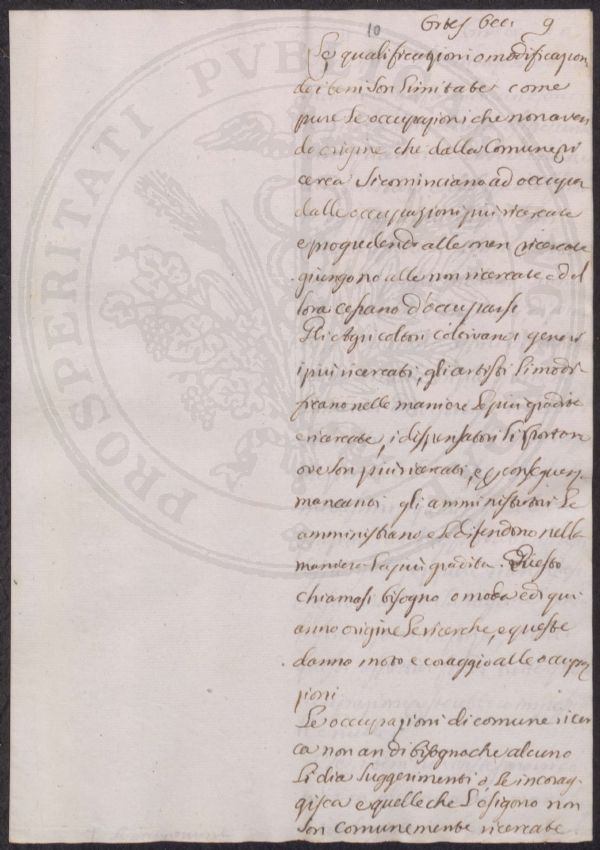 10
Ortes Ecc: 9
Le qualificazioni o modificazion
dei beni son limitate come
pure le occupazioni che non aven
do origine che dalla comune ri
cerca si cominciano ad occupar
dalle occupazioni più ricercate
e progredendi alle men ricercate
giungono alle non ricercate ed al
lora cessano d'occuparsi
Gli Agricoltori coltivano i generi
i più ricercati, gli artisti li modi-
ficano nelle maniere le più gradite
e ricercate, i dispensatori li portan
ove son più ricercati, e conseguen
mancanti gli amministratori le
amministrano e le difendono nella
maniera la più gradita. Questo
chiamasi bisogno o moda ed qui
anno origine le ricerche, e queste
danno moto e coraggio alle occupa
zioni
Le occupazioni di comune ricer
ca non an di bisogno che alcuno
li dia suggerimenti o le incorag-
gisca e quelle che l'esigono non
son comunemente ricercate
PROSPERITATI PVBLICAE